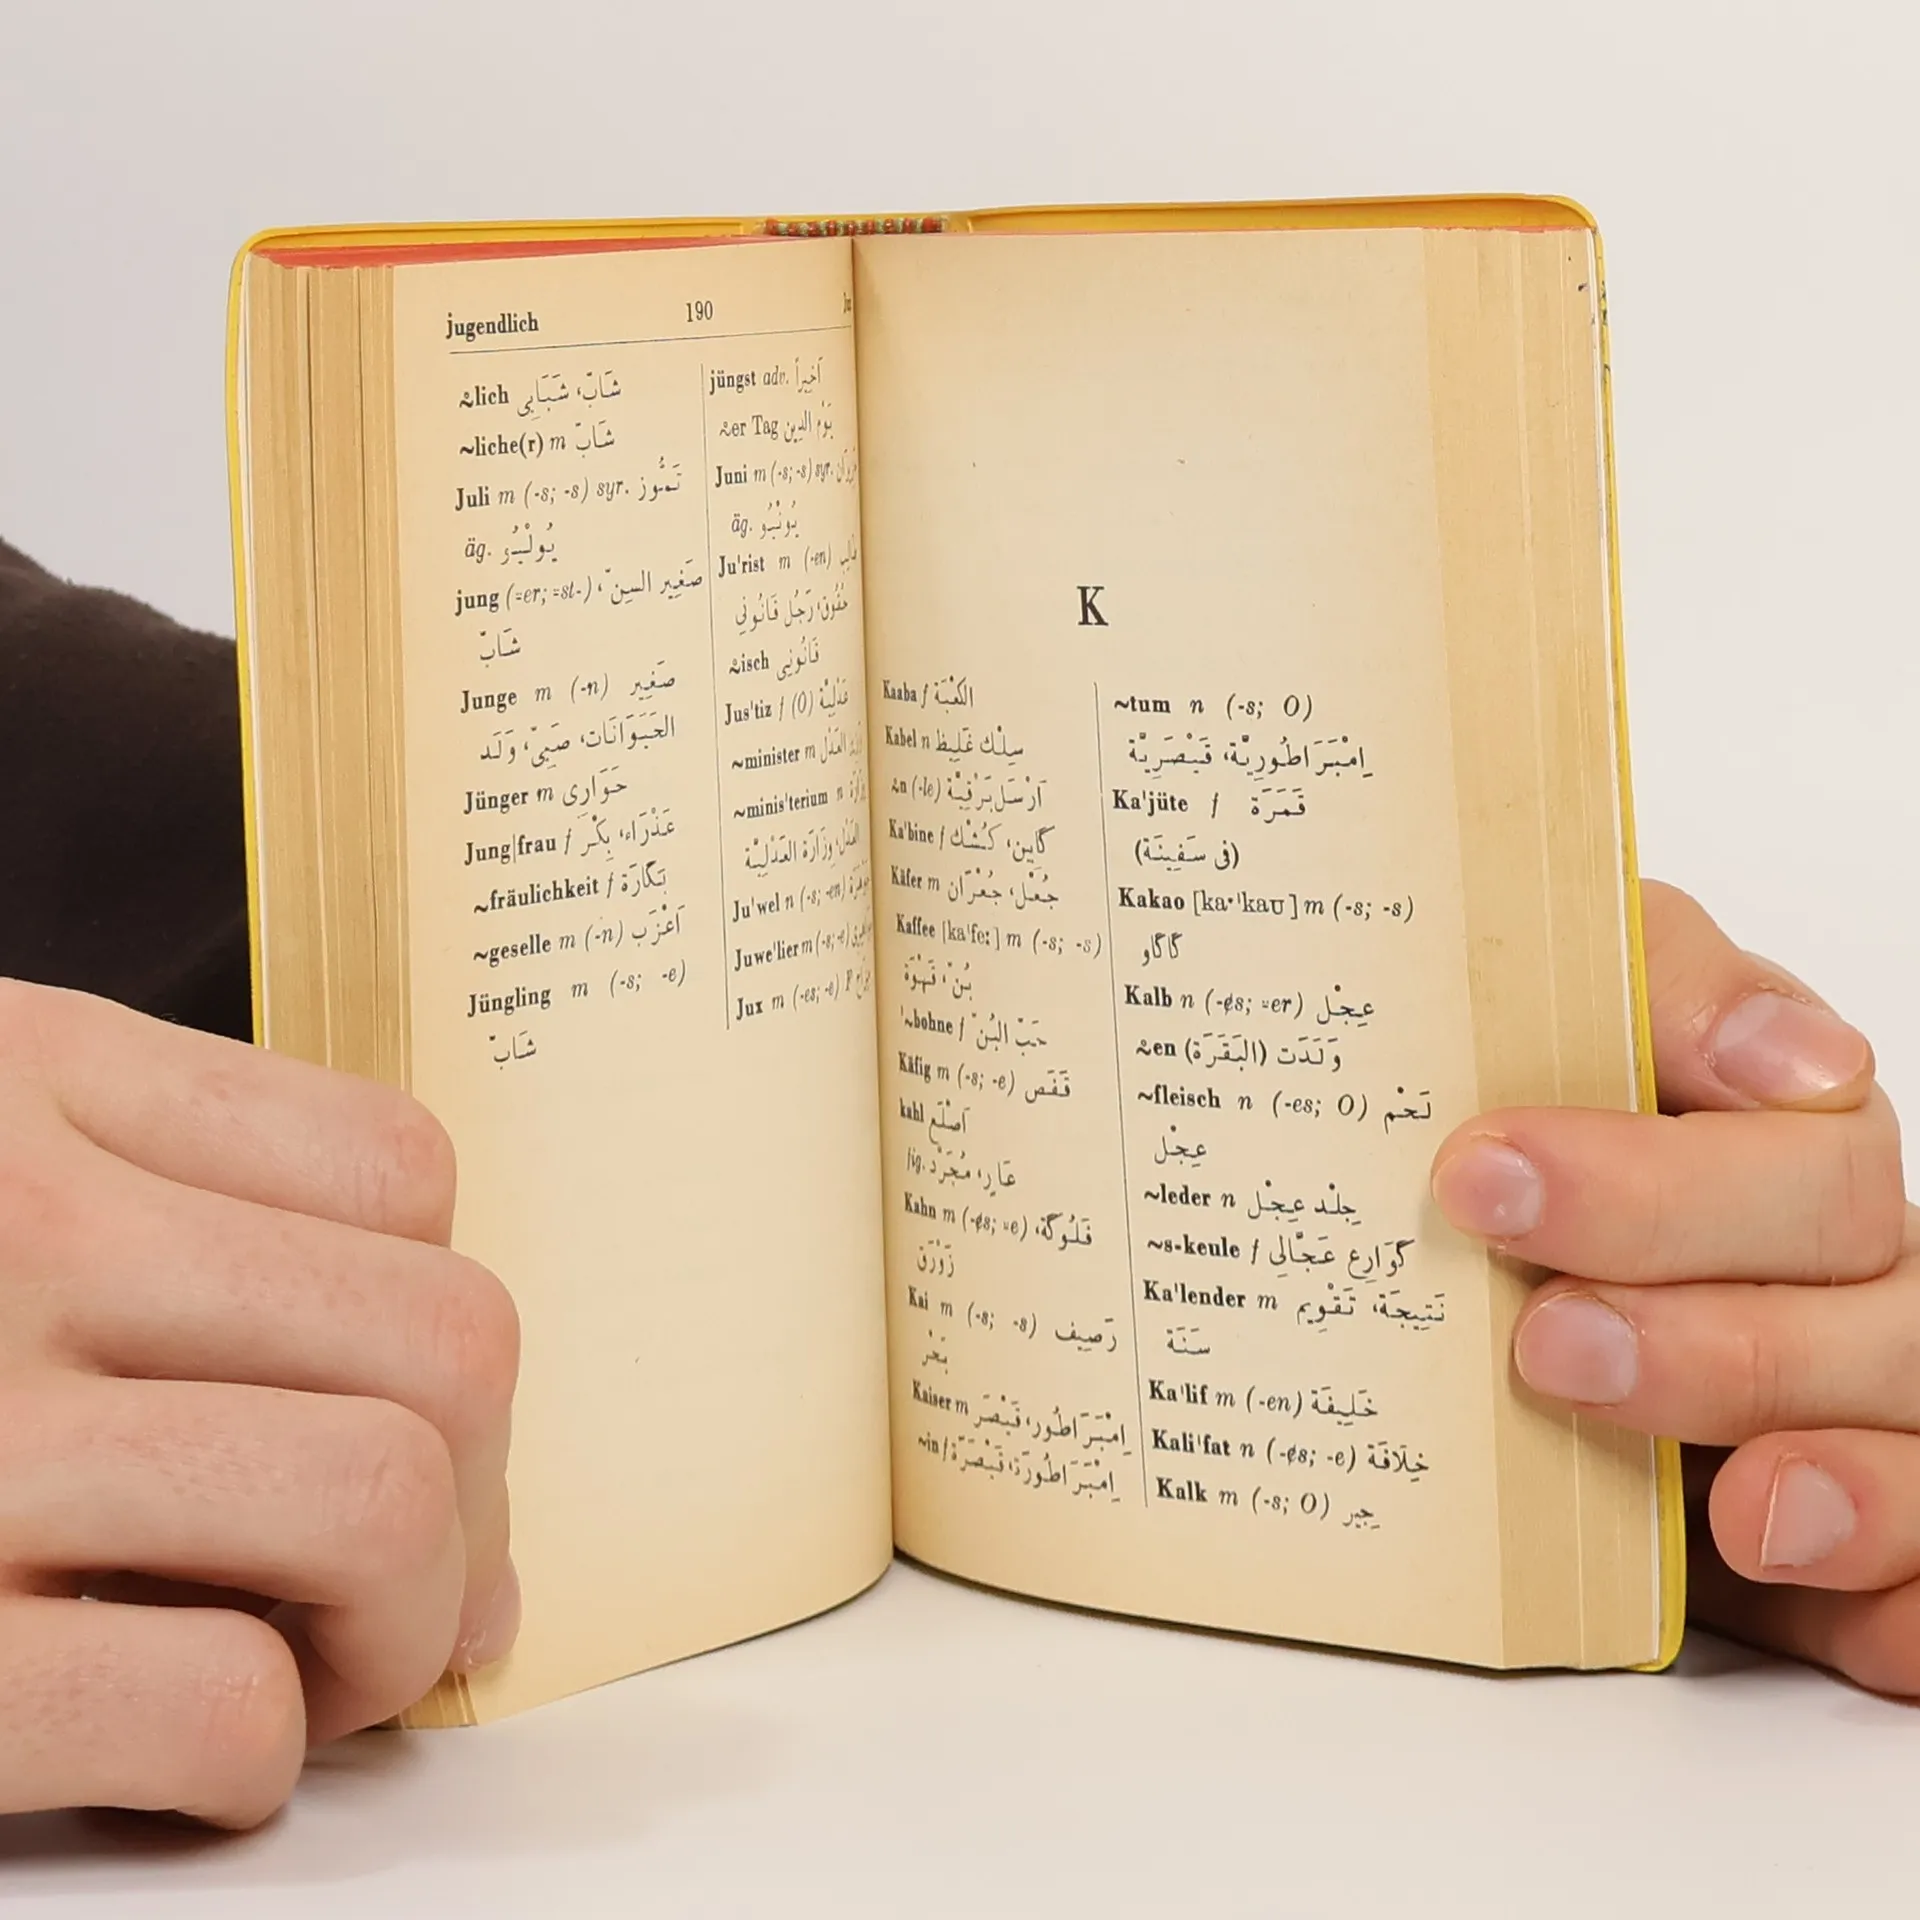 jugendlich 190
2lich شَابّ، شَبَابِى
~liche(r) m شَابّ
Juli m (-s; -s) syr. تَمُّوز
äg. يُولْيُو
jung (=er; =st-) صَغِير السِنّ،
شَابّ
Junge m (-n) صَغِير
الحَيَوَانَات، صَبِىّ، وَلَد
Jünger m حَوَارِى
Jung|frau f عَذْرَاء، بِكْر
~fräulichkeit f بَكَارَة
~geselle m (-n) أَعْزَب
Jüngling m (-s; -e)
شَابّ
jüngst adv. أَخِيراً
2er Tag يَوْم الدِين
Juni m (-s; -s) syr.
äg. يُونْيُو
Ju'rist m (-en)
حُقُوق، رَجُل قَانُونِى
2isch قَانُونِى
Jus'tiz f (O) عَدْلِيَّة
~minister m العَدْل
~minis'terium n
العَدْل، وِزَارَة العَدْلِيَّة
Ju'wel n (-s; -en)
Juwe'lier m (-s; -e)
Jux m (-es; -e) F
K
Kaaba f الكَعْبَة
Kabel n سِلْك غَلِيظ
2n (-le) أَرْسَل بَرْقِيَّة
Ka'bine f كَابِين، كُشْك
Käfer m جُعَل، جُعْرَان
Kaffee ['kafe:] m (-s; -s)
بُنّ، قَهْوَة
'~bohne f حَبّ البُنّ
Käfig m (-s; -e) قَفَص
kahl أَصْلَع
fig. عَارٍ، مُجَرَّد
Kahn m (-es; =e) فَلُوكَة،
زَوْرَق
Kai m (-s; -s) رَصِيف
بَحْر
Kaiser m إِمْبَرَاطُور، قَيْصَر
~in f إِمْبَرَاطُورَة، قَيْصَرَة
~tum n (-s; O)
إِمْبَرَاطُورِيَّة، قَيْصَرِيَّة
Ka'jüte f قَمَرَة
(فى سَفِينَة)
Kakao [ka·'kaʊ] m (-s; -s)
كَاكَاو
Kalb n (-es; =er) عِجْل
2en وَلَدَت (البَقَرَة)
~fleisch n (-es; O) لَحْم
عِجْل
~leder n جِلْد عِجْل
~s-keule f كَوَارِع عَجَّالِى
Ka'lender m نَتِيجَة، تَقْوِيم
سَنَة
Ka'lif m (-en) خَلِيفَة
Kali'fat n (-es; -e) خِلَافَة
Kalk m (-s; O) جِير